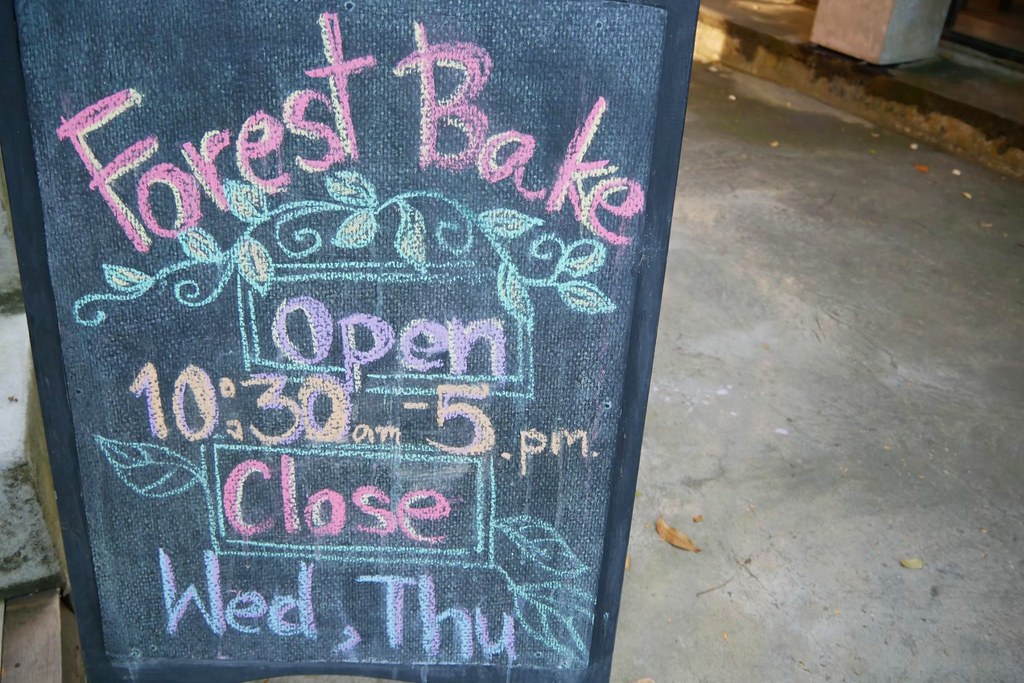 Forest Bake
Open
10:30am-5.pm.
Close
Wed, Thu